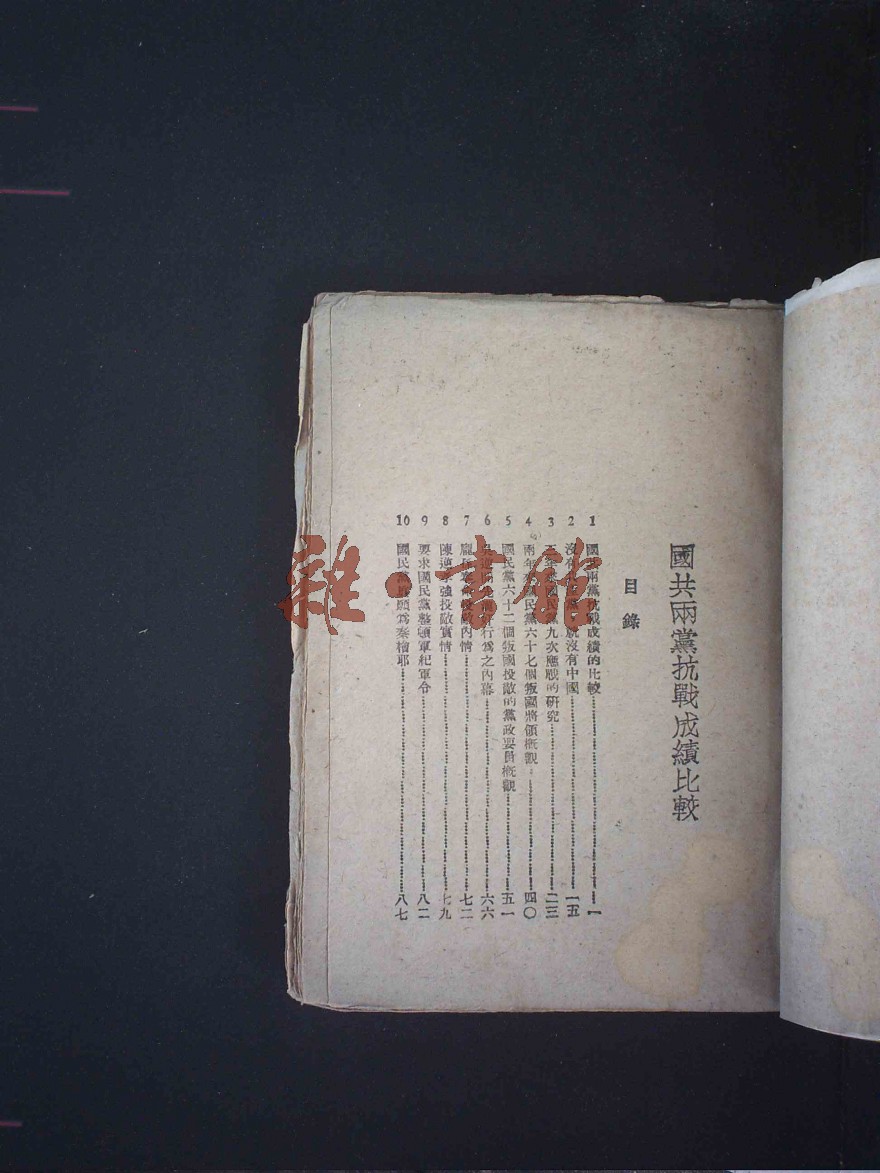 國共兩黨抗戰成績比較
目錄
1 國共兩黨抗戰成績的比較……一
2 沒有共產黨，就沒有中國……一五
3 年來國民黨九次應戰的研究……二三
4 兩年來國民黨六十七個叛國將領概觀……四〇
5 國民黨六十二個叛國投敵的黨政要員概觀……五一
6 逆行為之內幕……六六
7 龐投敵內情……七二
8 陳逆孝強投敵實情……七九
9 要求國民黨整頓軍紀軍令……八二
10 國民黨願為秦檜耶……八七
雜·書館